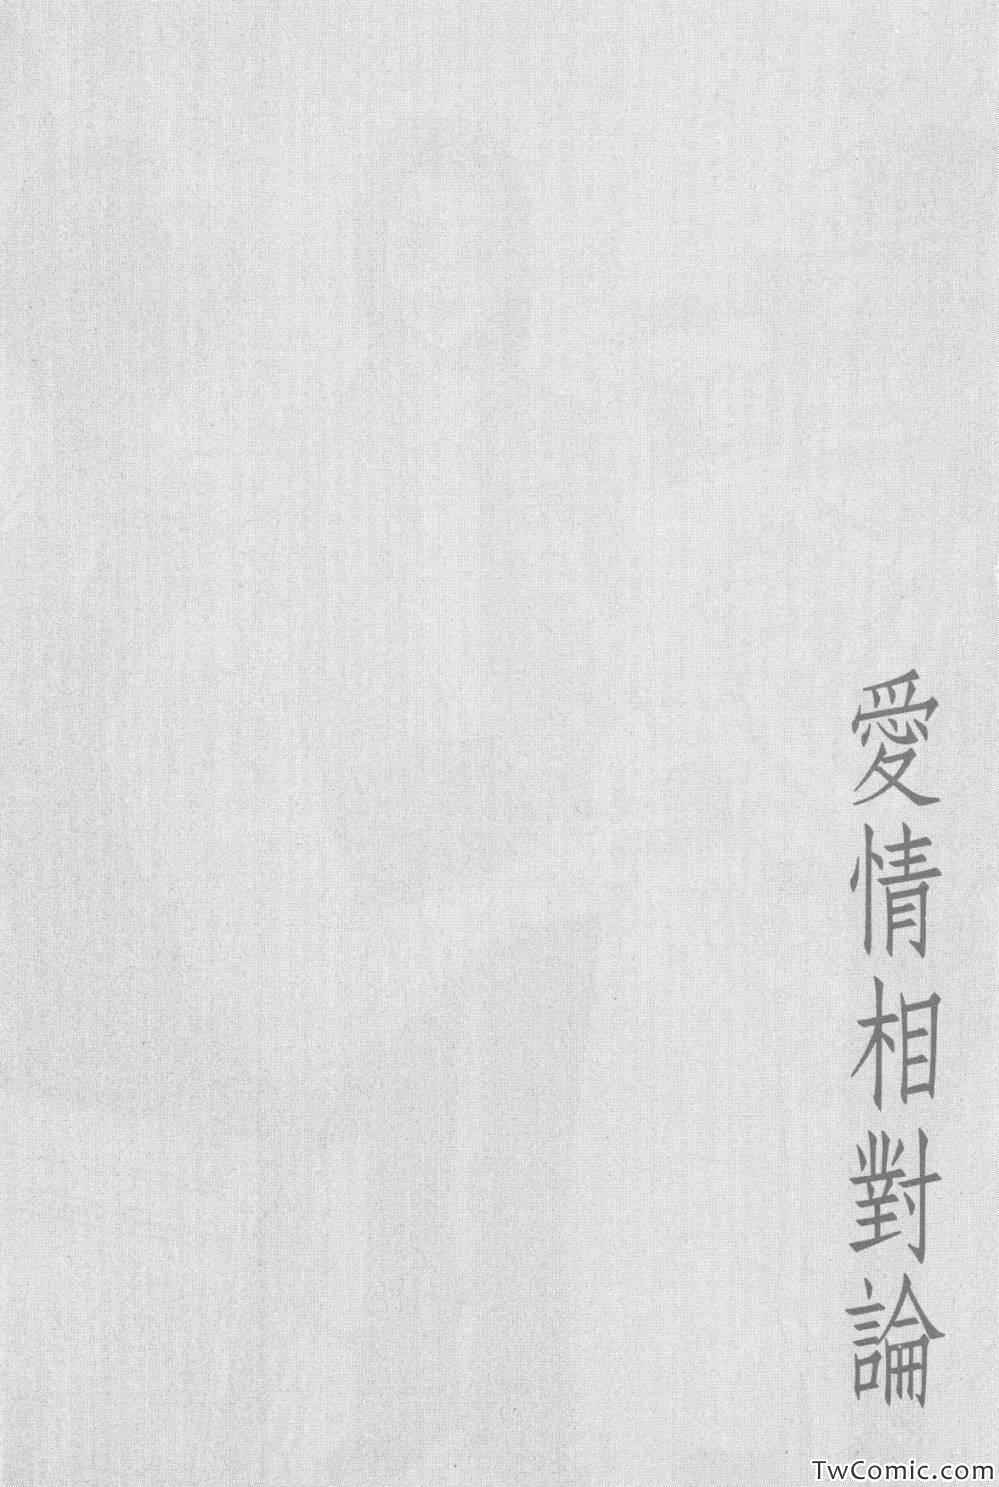 愛情相對論
TwComic.com